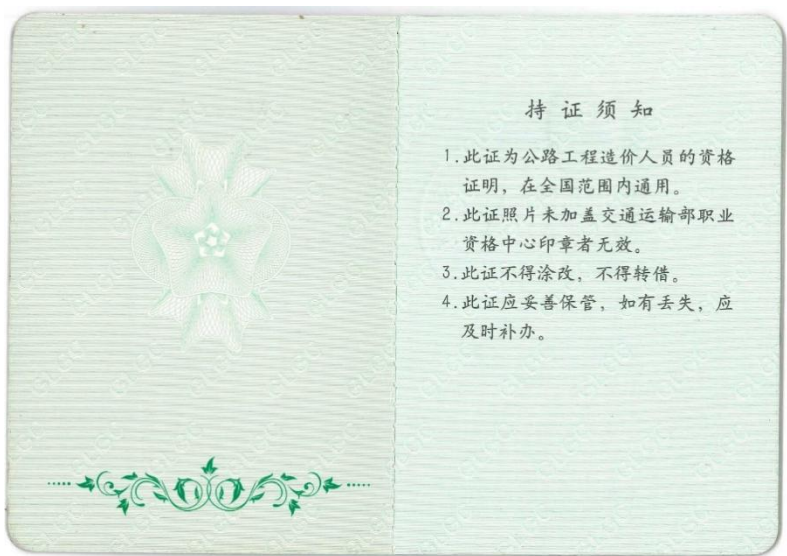 持证须知
1.此证为公路工程造价人员的资格
证明，在全国范围内通用。
2.此证照片未加盖交通运输部职业
资格中心印章者无效。
3.此证不得涂改，不得转借。
4.此证应妥善保管，如有丢失，应
及时补办。